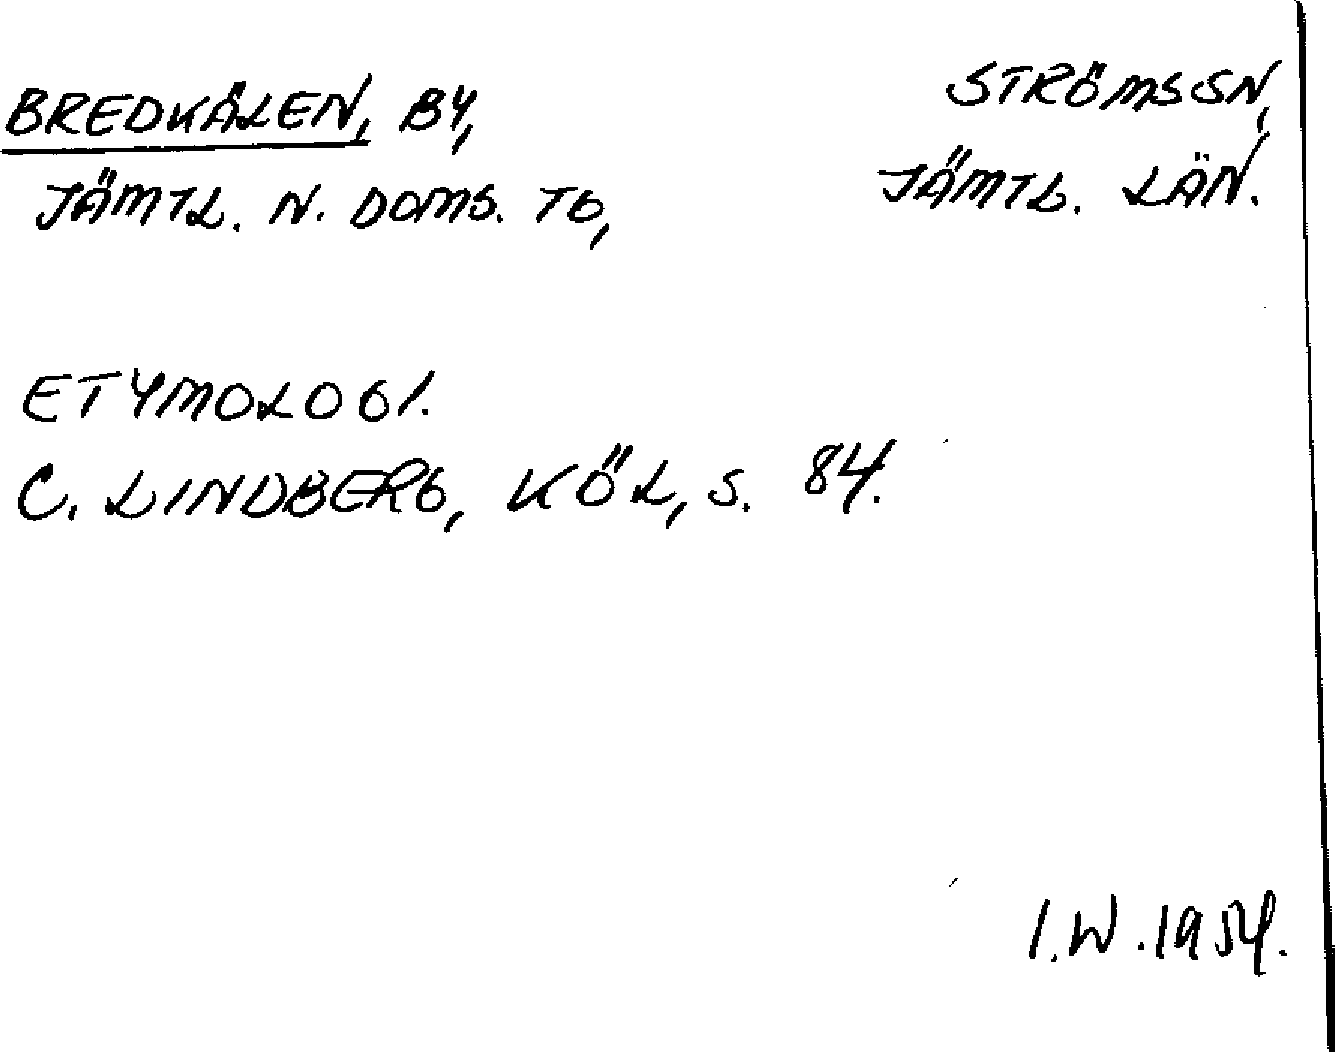 BREDKÅLEN, BY,
STRÖMS SN,
JÄMTL. N. DOMS. TG,
JÄMTL. LÄN.
ETYMOLOGI.
C. LINDBERG, KÖL, S. 84.
I.W. 1954.